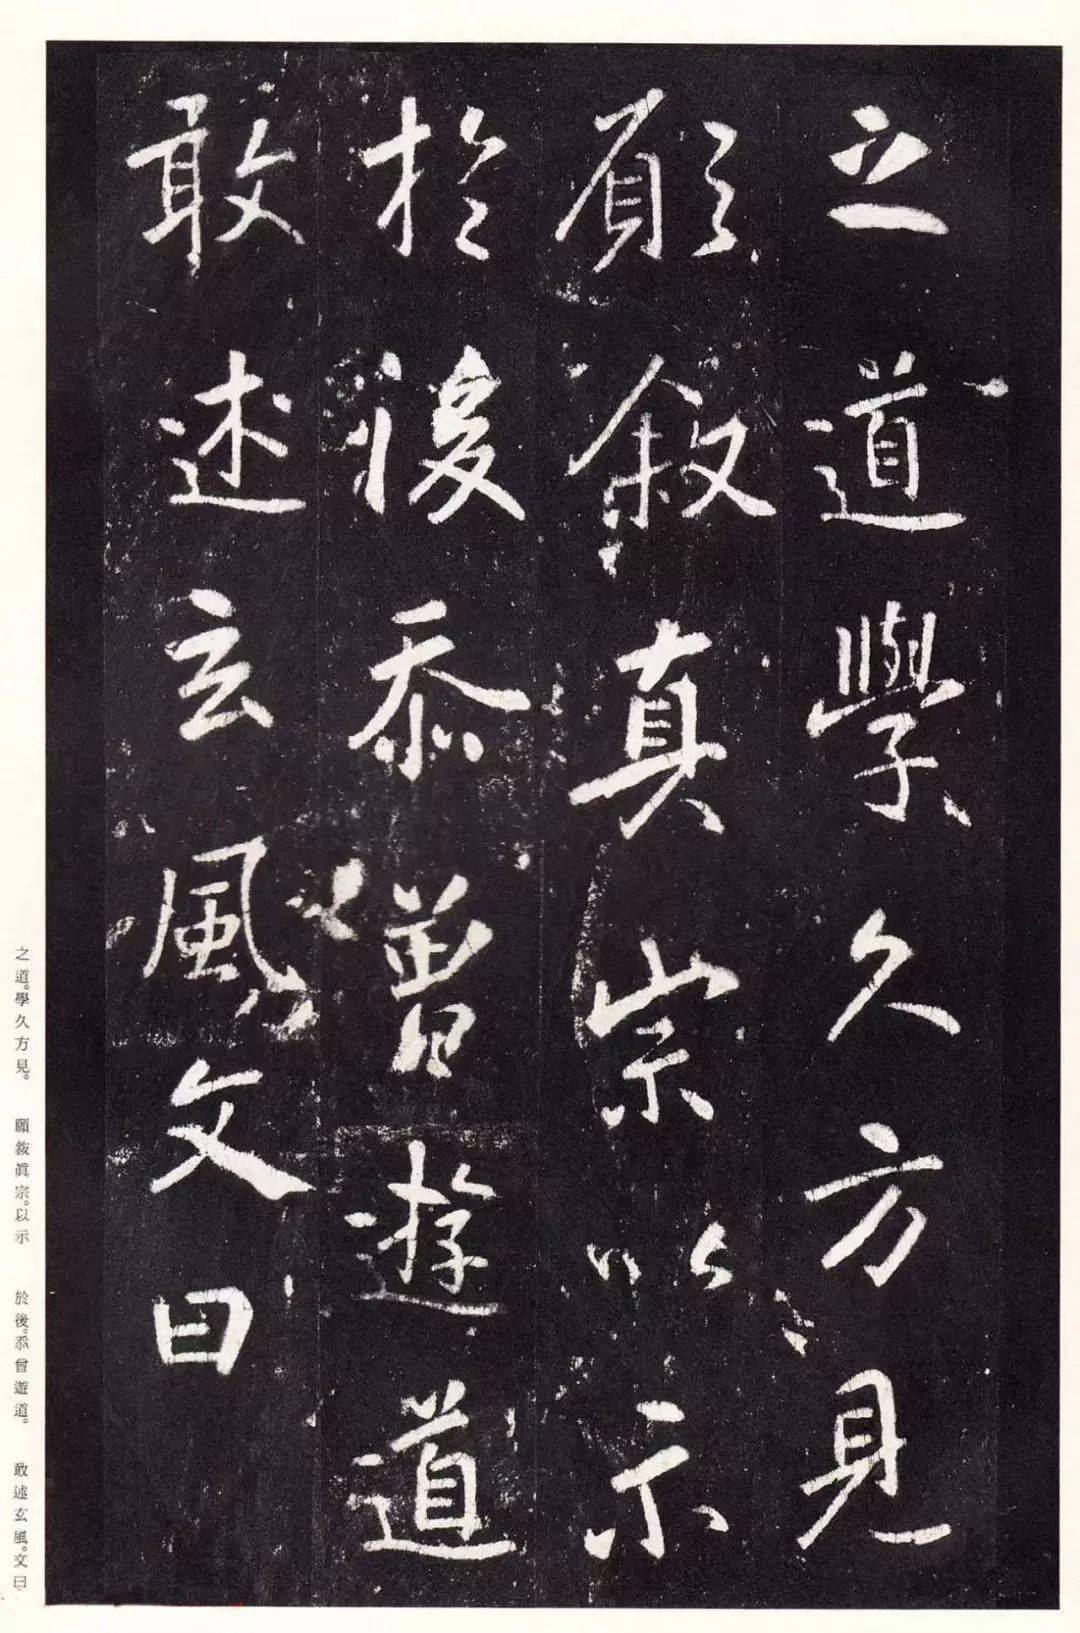 之道學久方見
願敘真宗以示
於後忝曾遊道
敢述玄風文曰
之道。學久方見。 願敘眞宗。以示 於後。忝曾遊道。 敢述玄風。文曰